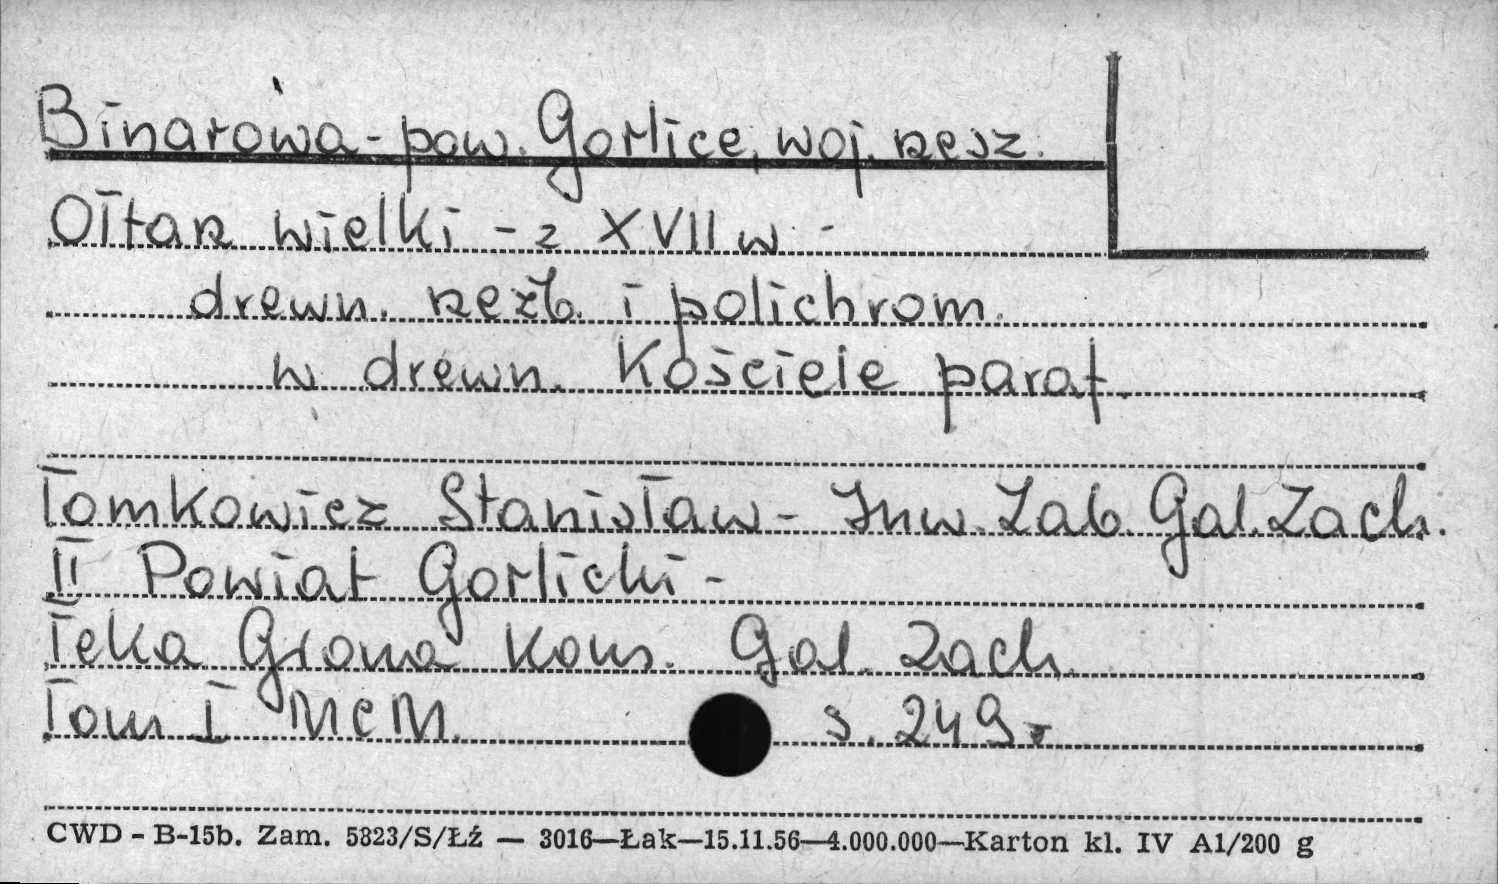 Binarowa - pow. Gorlice, woj. rzesz.
Ołtarz wielki - z XVII w -
drewn. rzeźb. i polichrom.
w drewn. Kościele paraf.
Tomkowicz Stanisław - Inw. Zab. Gal. Zach.
II Powiat Gorlicki -
Teka Grona Kons. Gal. Zach.
Tom I MCM. s. 249.
CWD - B-15b. Zam. 5823/S/Łź — 3016—Łak—15.11.56—4.000.000—Karton kl. IV A1/200 g